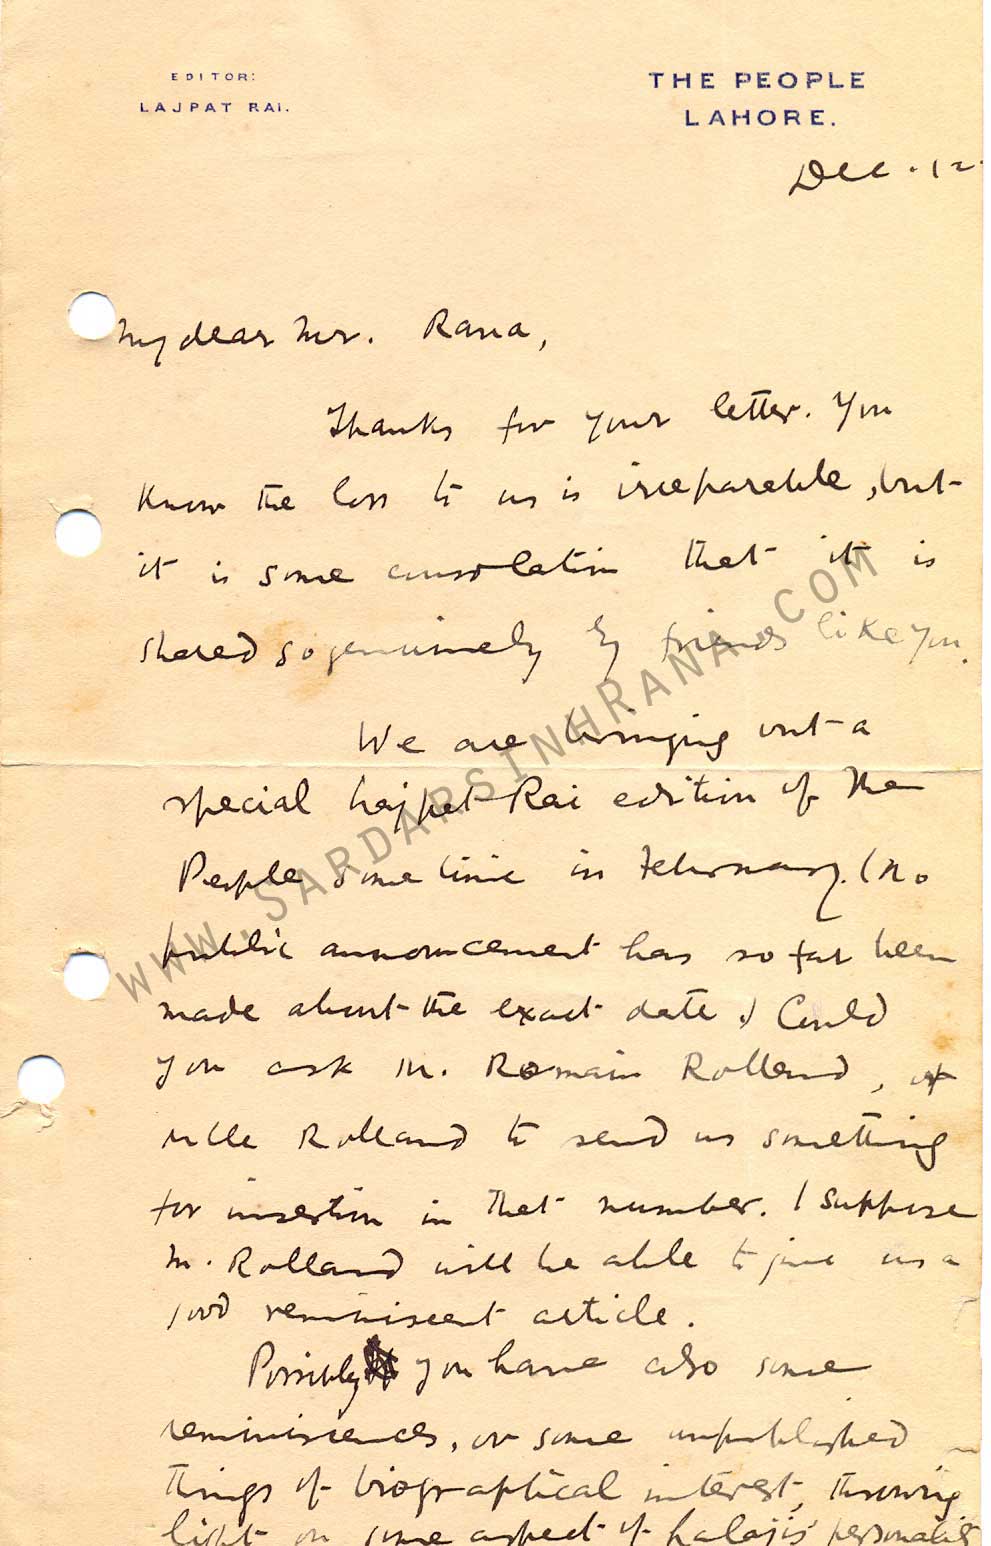 EDITOR:
LAJPAT RAI.
THE PEOPLE
LAHORE.
Dec. 12
My dear Mr. Rana,
Thanks for your letter. You
know the loss to us is irreparable, but
it is some consolation that it is
shared so genuinely by friends like you.
We are bringing out a
special Lajpat Rai edition of The
People some time in February. (No
public announcement has so far been
made about the exact date.) Could
you ask M. Romain Rolland, or
Mlle Rolland to send us something
for insertion in that number. I suppose
M. Rolland will be able to give us a
good reminiscent article.
Possibly you have also some
reminiscences, or some unpublished
things of biographical interest, throwing
light on some aspect of Lalaji's personality
WWW.SARDARSINHRANA.COM